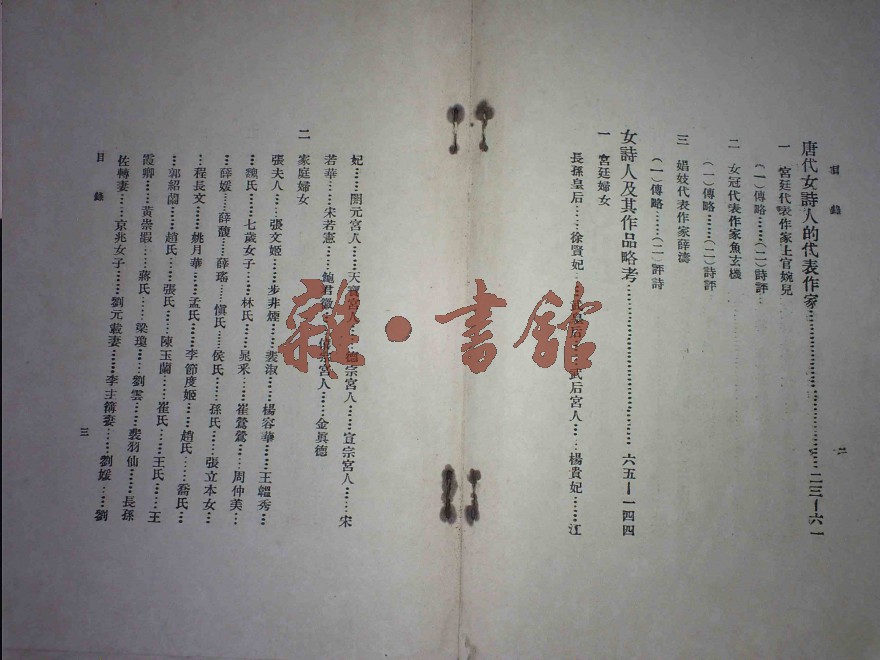 目錄
唐代女詩人的代表作家……二三—六一
一 宮廷代表作家上官婉兒
(一)傳略……(二)詩評
二 女冠代表作家魚玄機
(一)傳略……(二)詩評
三 娼妓代表作家薛濤
(一)傳略……(二)評詩
女詩人及其作品略考……六五—一四四
一 宮廷婦女
長孫皇后……徐賢妃……武皇后……武后宮人……楊貴妃……江
二
妃……開元宮人……天寶宮人……德宗宮人……宣宗宮人……宋
若華……宋若憲……鮑君徽……僖宗宮人……金真德
二 家庭婦女
張夫人……張文姬……步非煙……裴淑……楊容華……王韞秀…
…魏氏……七歲女子……林氏……晁采……崔鶯鶯……周仲美…
…薛媛……薛馥……薛瑤……愼氏……侯氏……孫氏……張立本女…
…程長文……姚月華……孟氏……李節度姬……趙氏……喬氏…
…郭紹蘭……趙氏……張氏……陳玉蘭……崔氏……王氏……王
霞卿……黃崇嘏……蔣氏……梁瓊……劉雲……裴羽仙……長孫
佐轉妻……京兆女子……劉元載妻……李主簿妻……劉媛……劉
目錄
三
雜·書館